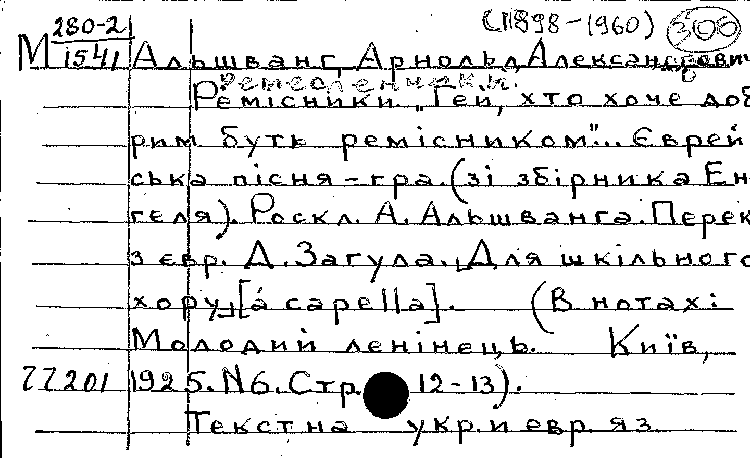 280-2 (1898-1960) 300
М 1541 Альшванг, Арнольд Александрович
Ремесленники.
Ремісники. „Гей, хто хоче доб
рим буть ремісником"... Єврей
ська пісня-гра. (зі збірника Ен-
геля). Роскл. А. Альшванга. Перек
з євр. Д. Загула. [Для шкільного
хору] [á capella]. (В нотах:
Молодий ленінець. Київ,
77201 1925. N6. Стр. 12-13).
Текст на укр. и евр. яз.